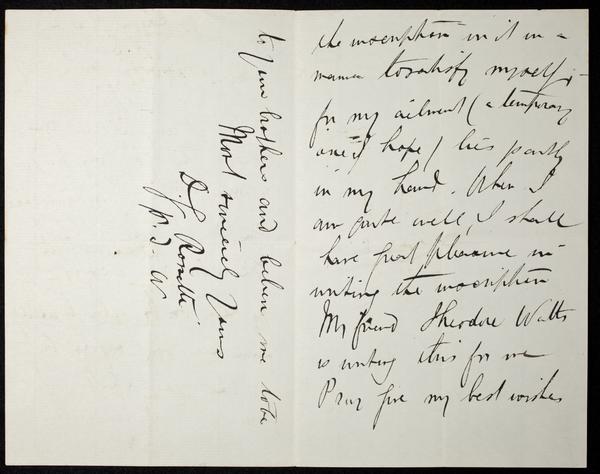 the inscription in it in a
manner to satisfy myself;—
for my ailment (a temporary
one I hope) lies partly
in my hand. When I
am quite well, I shall
have great pleasure in
writing the inscription
My friend Theodore Watts
is writing this for me
Pray give my best wishes
to your brothers and believe me to be
Most sincerely Yours
D. G. Rossetti
p. T. W